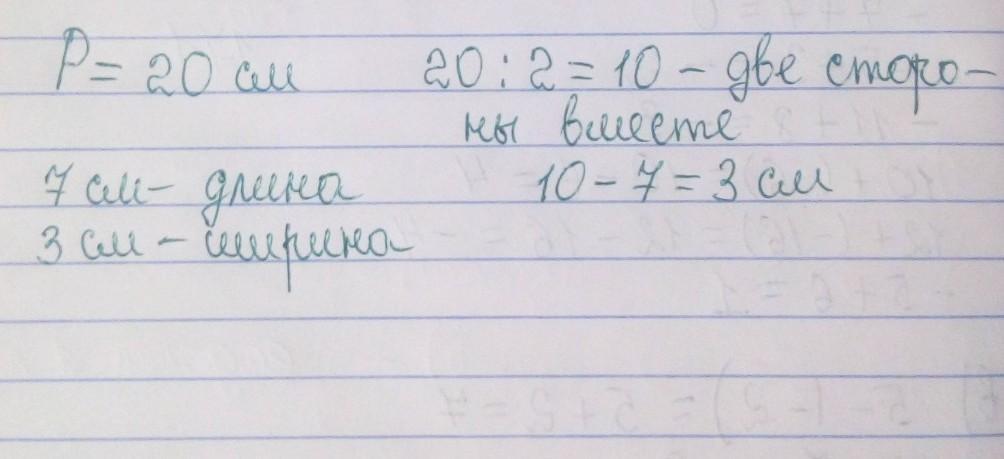 P = 20 см 20 : 2 = 10 - две сторо-
ны вместе
7 см - длина 10 - 7 = 3 см
3 см - ширина
- 5 + 6 = 1
5 - (- 2) = 5 + 2 = 7